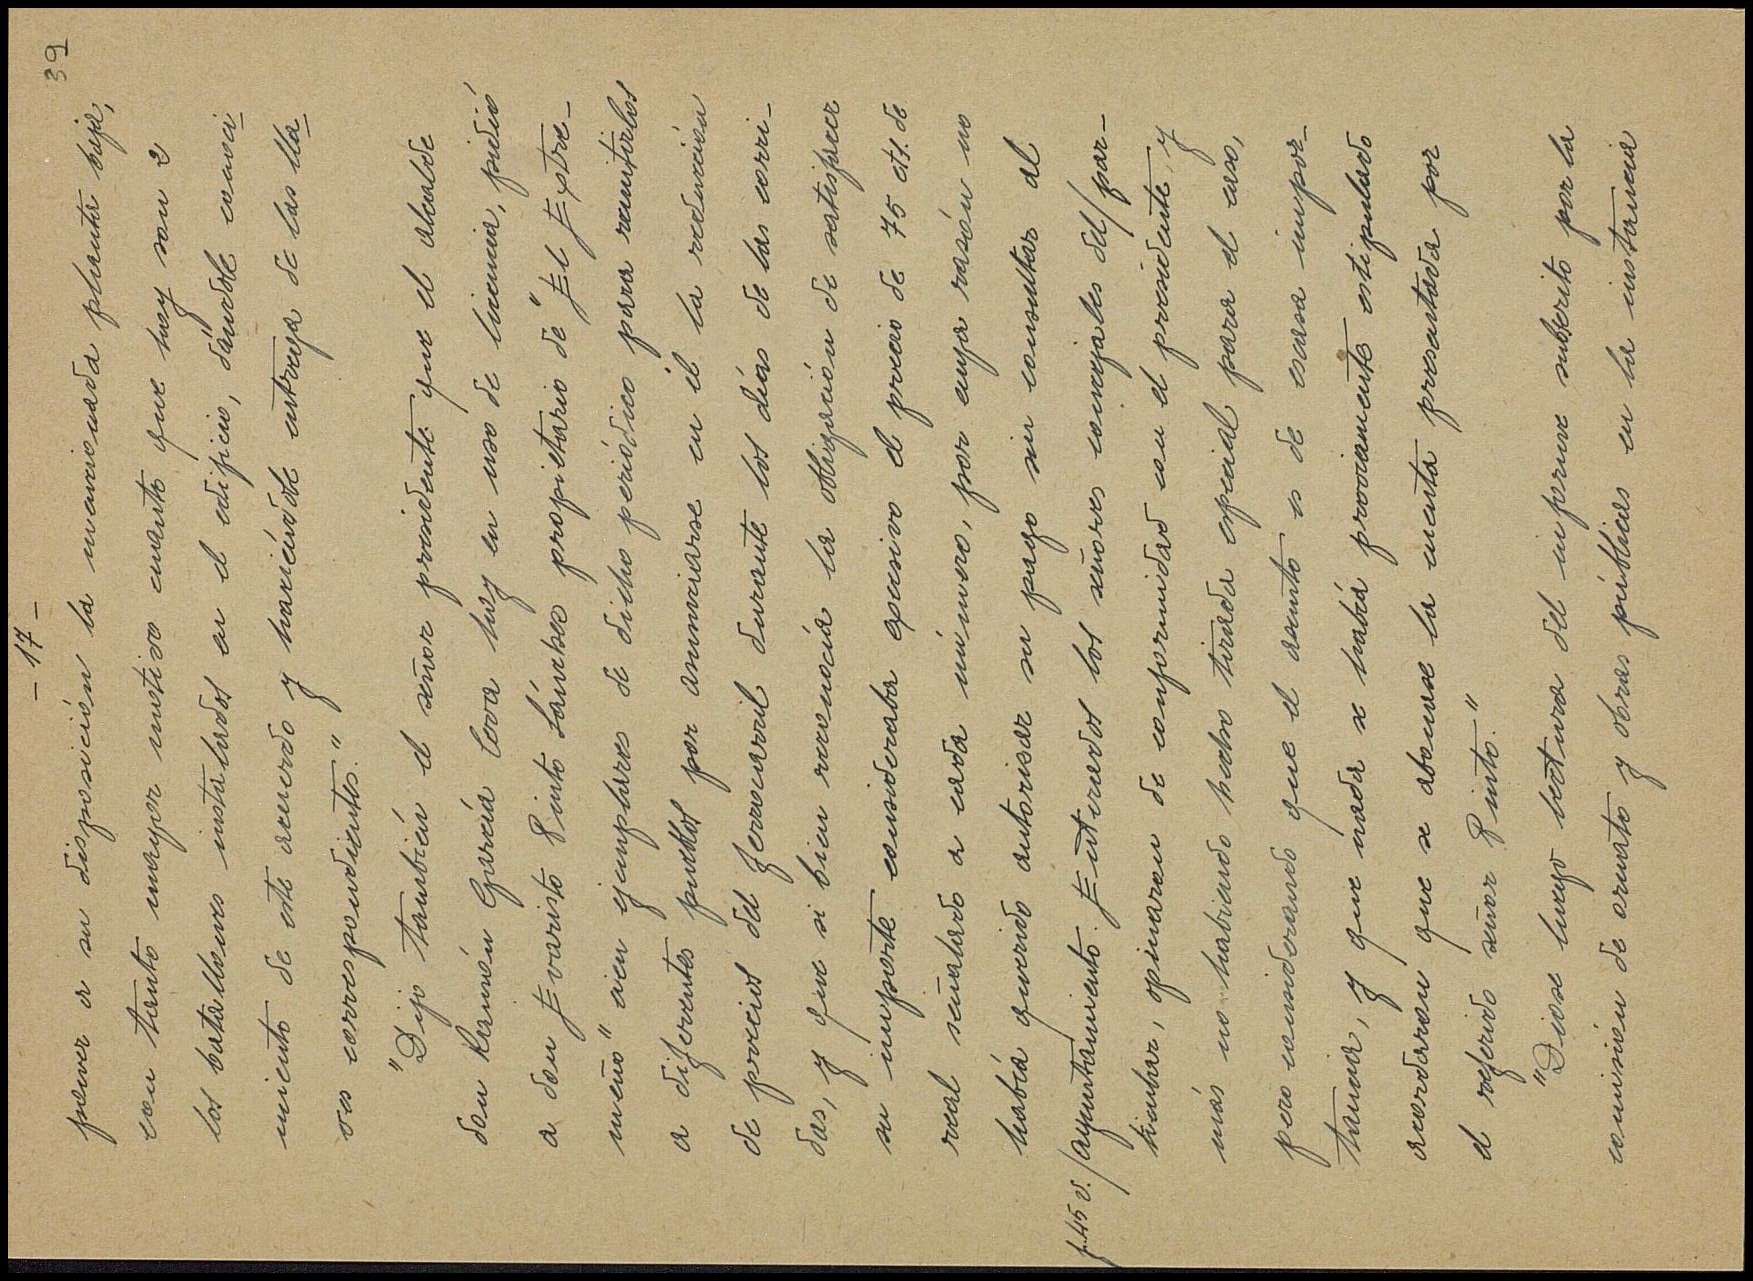 - 17 -
39
poner a su disposición la mencionada planta baja,
con tanto mayor motivo cuanto que hoy son 2
los batallones instalados en el edificio, dándole conoci-
miento de este acuerdo y haciéndole entrega de las lla-
ves correspondientes."
"Dijo también el señor presidente que el alcalde
don Ramón García Cova hoy en uso de licencia, pidió
a don Evaristo Pinto Sánchez propietario de "El Extre-
meño" cien ejemplares de dicho periódico para remitirlos
a diferentes pueblos por anunciarse en él la reducción
de precios del ferrocarril durante los días de las corri-
das, y que si bien reconocía la obligación de satisfacer
su importe consideraba excesivo el precio de 75 cts. de
real señalado a cada número, por cuya razón no
había querido autorizar su pago sin consultar al
f.45 v. /ayuntamiento. Enterados los señores concejales del/par-
ticular, opinaron de conformidad con el presidente, y
más no habiendo hecho tirada especial para el caso,
pero considerando que el asunto es de escasa impor-
tancia, y que nada se había previamente estipulado
acordaron que se abonase la cuenta presentada por
el referido señor Pinto."
"Diose luego lectura del informe subscrito por la
comisión de ornato y obras públicas en la instancia